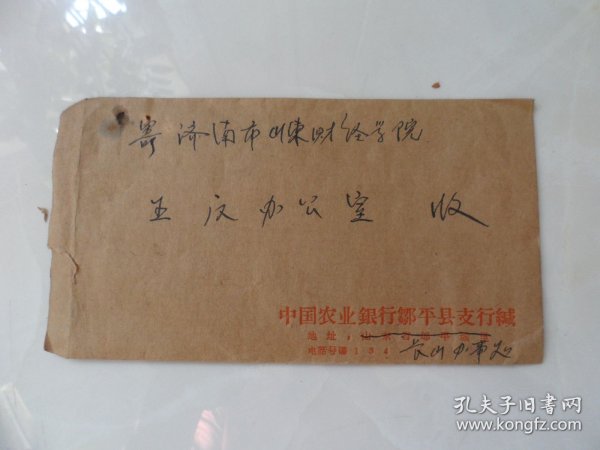 寄 济南市山东财经学院
办公室 收
中国农业銀行鄒平县支行緘
地址：山东省鄒平
电话号碼 1 5 4
长山办事处
孔夫子旧书网
www.kongfz.com